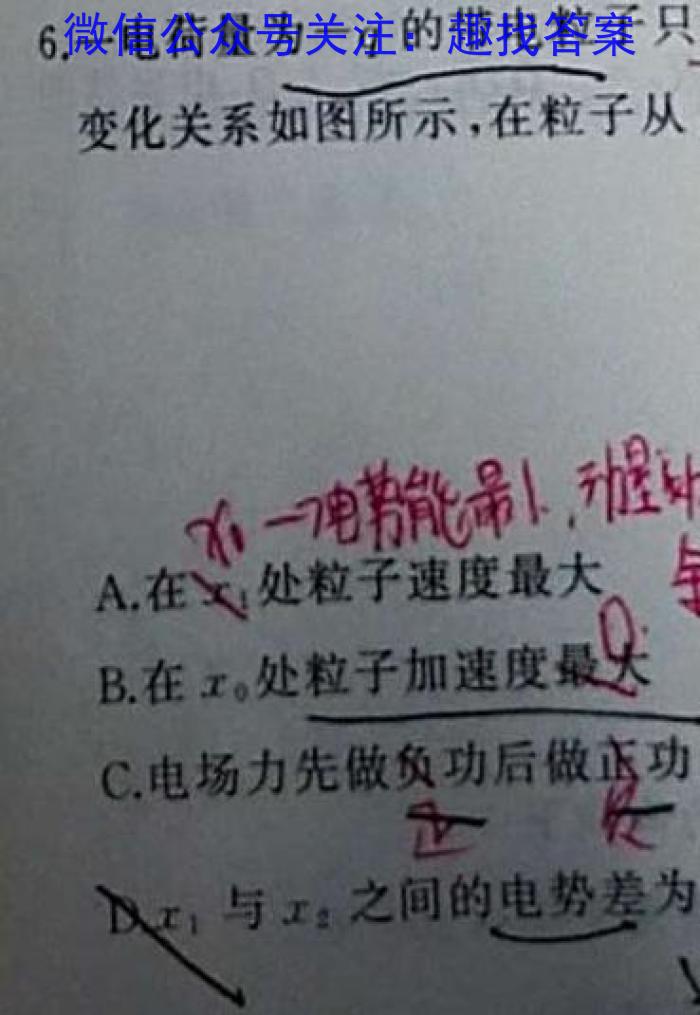 微信公众号关注：趣找答案
6.一电荷量为-q的带电粒子只
变化关系如图所示,在粒子从
x₀→电势能最小,动
A.在x₁处粒子速度最大
0
B.在x₀处粒子加速度最大
C.电场力先做负功后做正功
正 负
D.x₁与x₂之间的电势差为